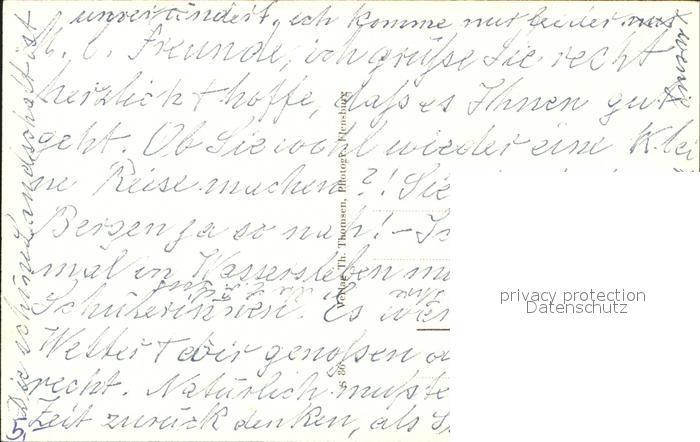 unverändert, ich komme nur leider
M. l. Freunde, ich grüße Sie recht
herzlich + hoffe, daß es Ihnen gut
geht. Ob Sie wohl wieder eine Klei
ne Reise machen?! Sie
Bergen ja so nah! – Ich
mal in Wassersleben
Schülerinnen. Es war
Wetter + wir genoßen
recht. Natürlich mußte
Zeit zurück denken, als
Die schöne Landschaft ist
zu wenig
Verlag Th. Thomsen, Photogr., Flensburg
privacy protection
Datenschutz
5,